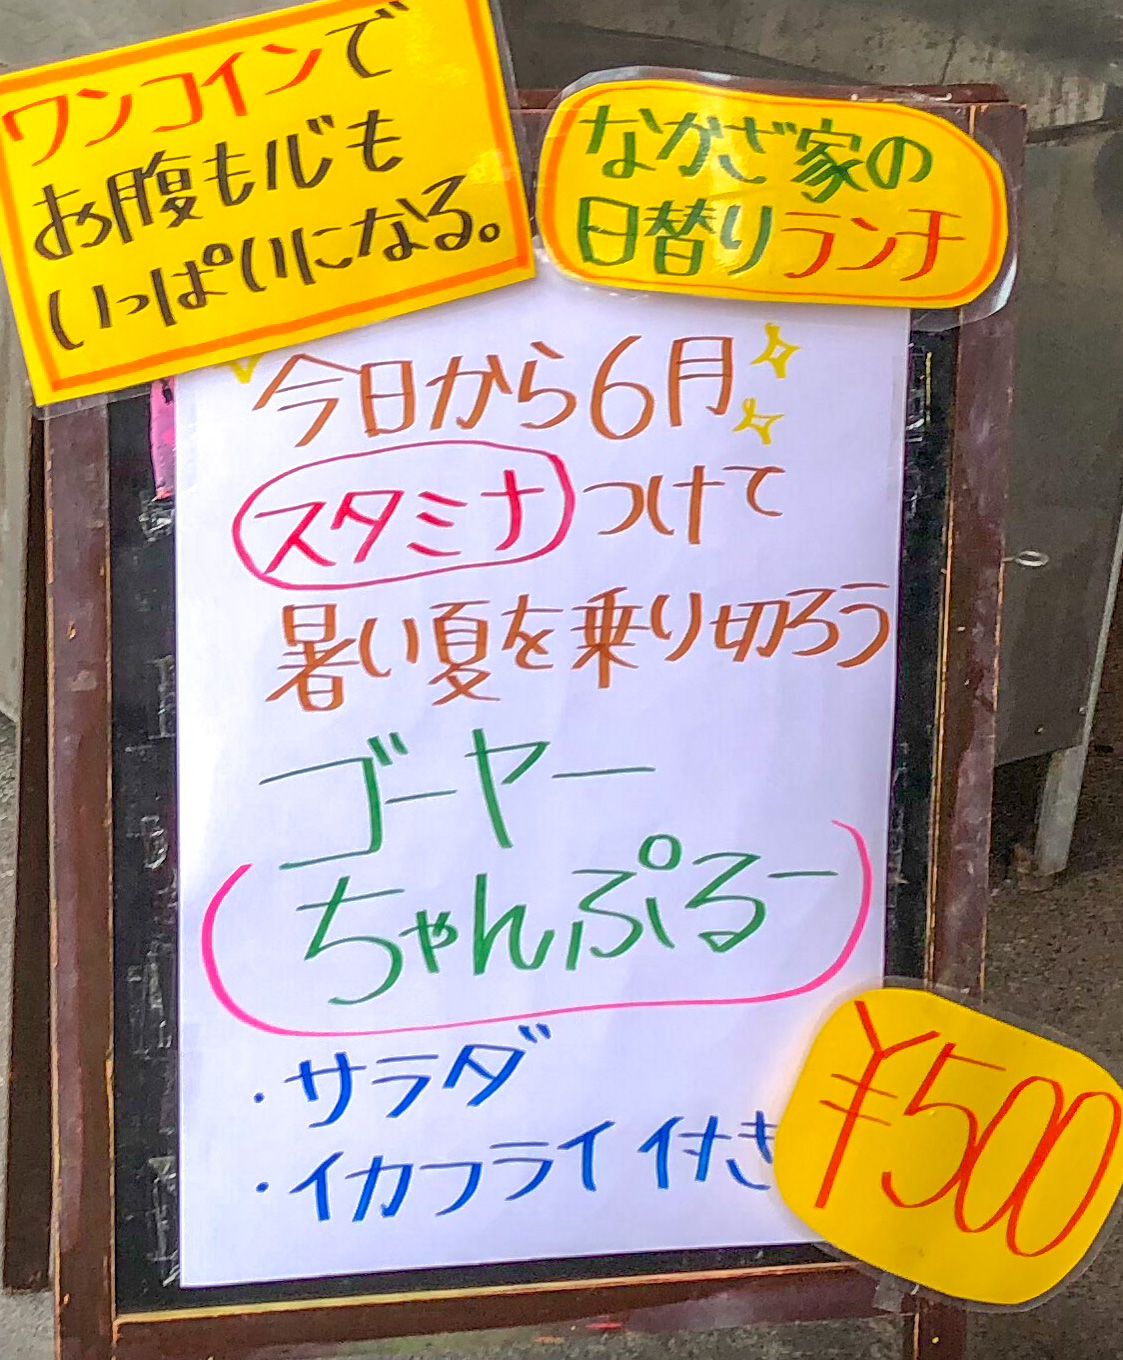 ワンコインで
お腹も心も
いっぱいになる。
なかざ家の
日替りランチ
今日から6月
スタミナつけて
暑い夏を乗り切ろう
ゴーヤー
ちゃんぷるー
・サラダ
・イカフライ付き
¥500